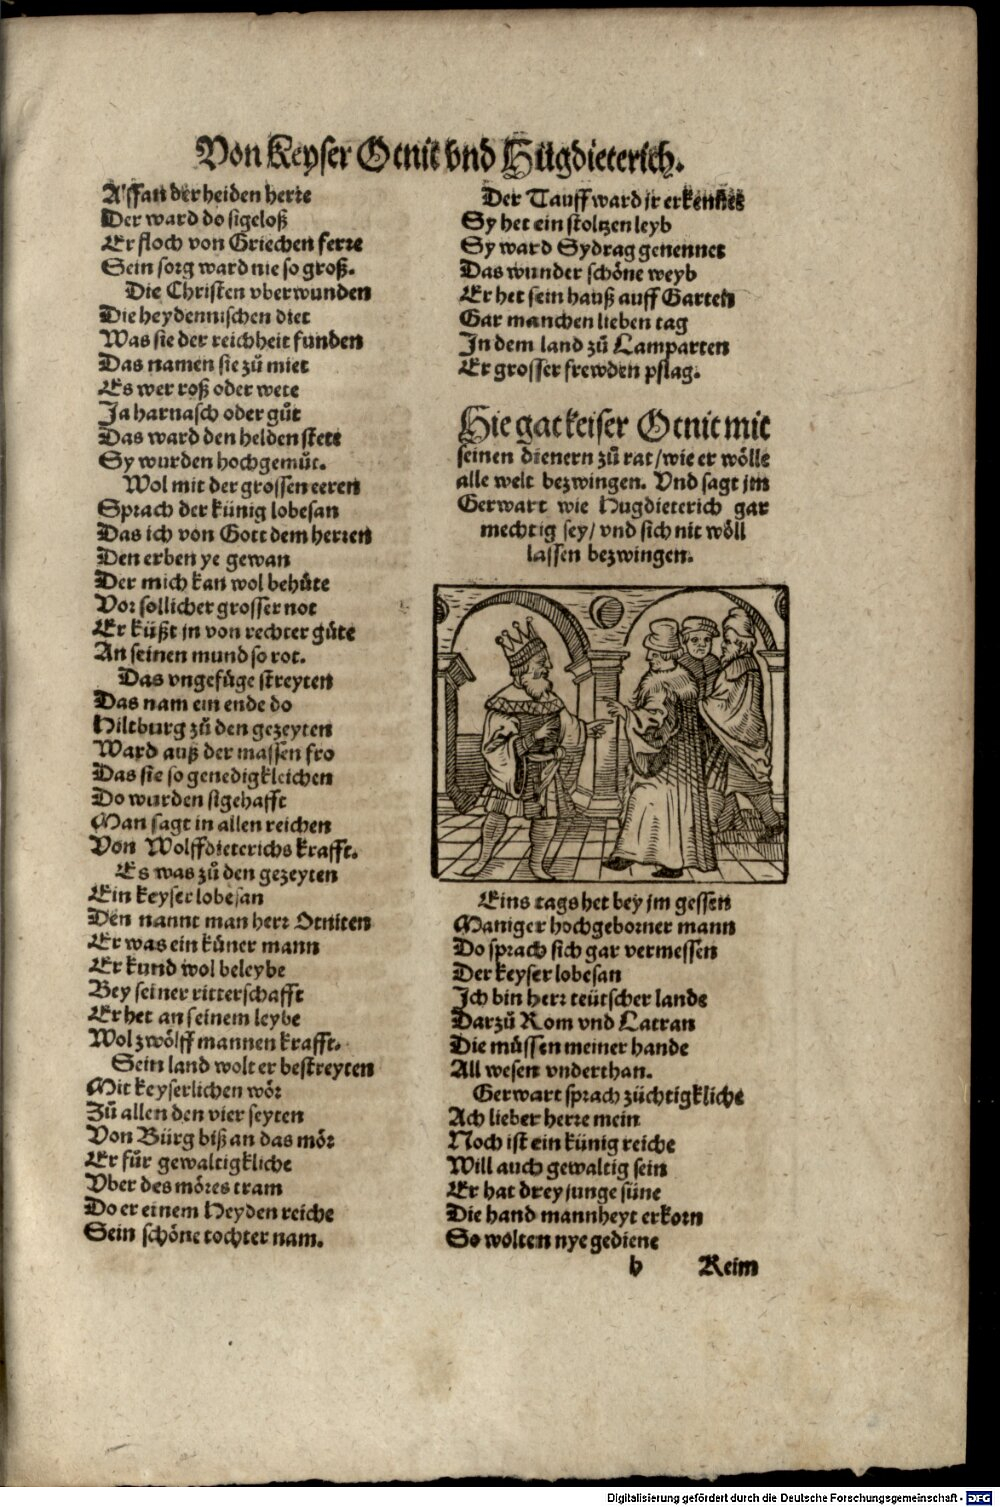 Von Keyser Otnit vnd Hügdieterich.
Affan der heiden herre
Der ward do sigeloß
Er floch von Griechen ferre
Sein sorg ward nie so groß.
Die Christen vberwunden
Die heydennischen diet
Was sie der reichheit funden
Das namen sie zů miet
Es wer roß oder wete
Ja harnasch oder gůt
Das ward den helden stete
Sy wurden hochgemůt.
Wol mit der grossen eeren
Sprach der künig lobesan
Das ich von Gott dem herren
Den erben ye gewan
Der mich kan wol behüte
Vor sollicher grosser not
Er küßt jn von rechter güte
An seinen mund so rot.
Das vngefüge streyten
Das nam ein ende do
Hiltburg zů den gezeyten
Ward auß der massen fro
Das sie so genedigkleichen
Do wurden sigehafft
Man sagt in allen reichen
Von Wolffdieterichs krafft.
Es was zů den gezeyten
Ein keyser lobesan
Den nannt man herr Otniten
Er was ein küner mann
Er kund wol beleybe
Bey seiner ritterschafft
Er het an seinem leybe
Wol zwölff mannen krafft.
Sein land wolt er bestreyten
Mit keyserlichen wör
Zů allen den vier seyten
Von Bürg biß an das mör
Er für gewaltigkliche
Vber des möres tram
Do er einem Heyden reiche
Sein schöne tochter nam.
Der Tauff ward jr erkennet
Sy het ein stoltzen leyb
Sy ward Sydrag genennet
Das wunder schöne weyb
Er het sein hauß auff Garten
Gar manchen lieben tag
In dem land zů Lamparten
Er grosser frewden pflag.
Hie gat keiser Otnit mit
seinen dienern zů rat / wie er wölle
alle welt bezwingen. Vnd sagt jm
Gerwart wie Hugdieterich gar
mechtig sey / vnd sich nit wöll
lassen bezwingen.
Eins tags het bey jm gessen
Maniger hochgeborner mann
Do sprach sich gar vermessen
Der keyser lobesan
Ich bin herr teütscher lande
Darzů Rom vnd Latran
Die müssen meiner hande
All wesen vnderthan.
Gerwart sprach züchtigkliche
Ach lieber herre mein
Noch ist ein künig reiche
Will auch gewaltig sein
Er hat drey junge süne
Die hand mannheyt erkorn
So wolten nye gediene
b Reim
Digitalisierung gefördert durch die Deutsche Forschungsgemeinschaft - DFG